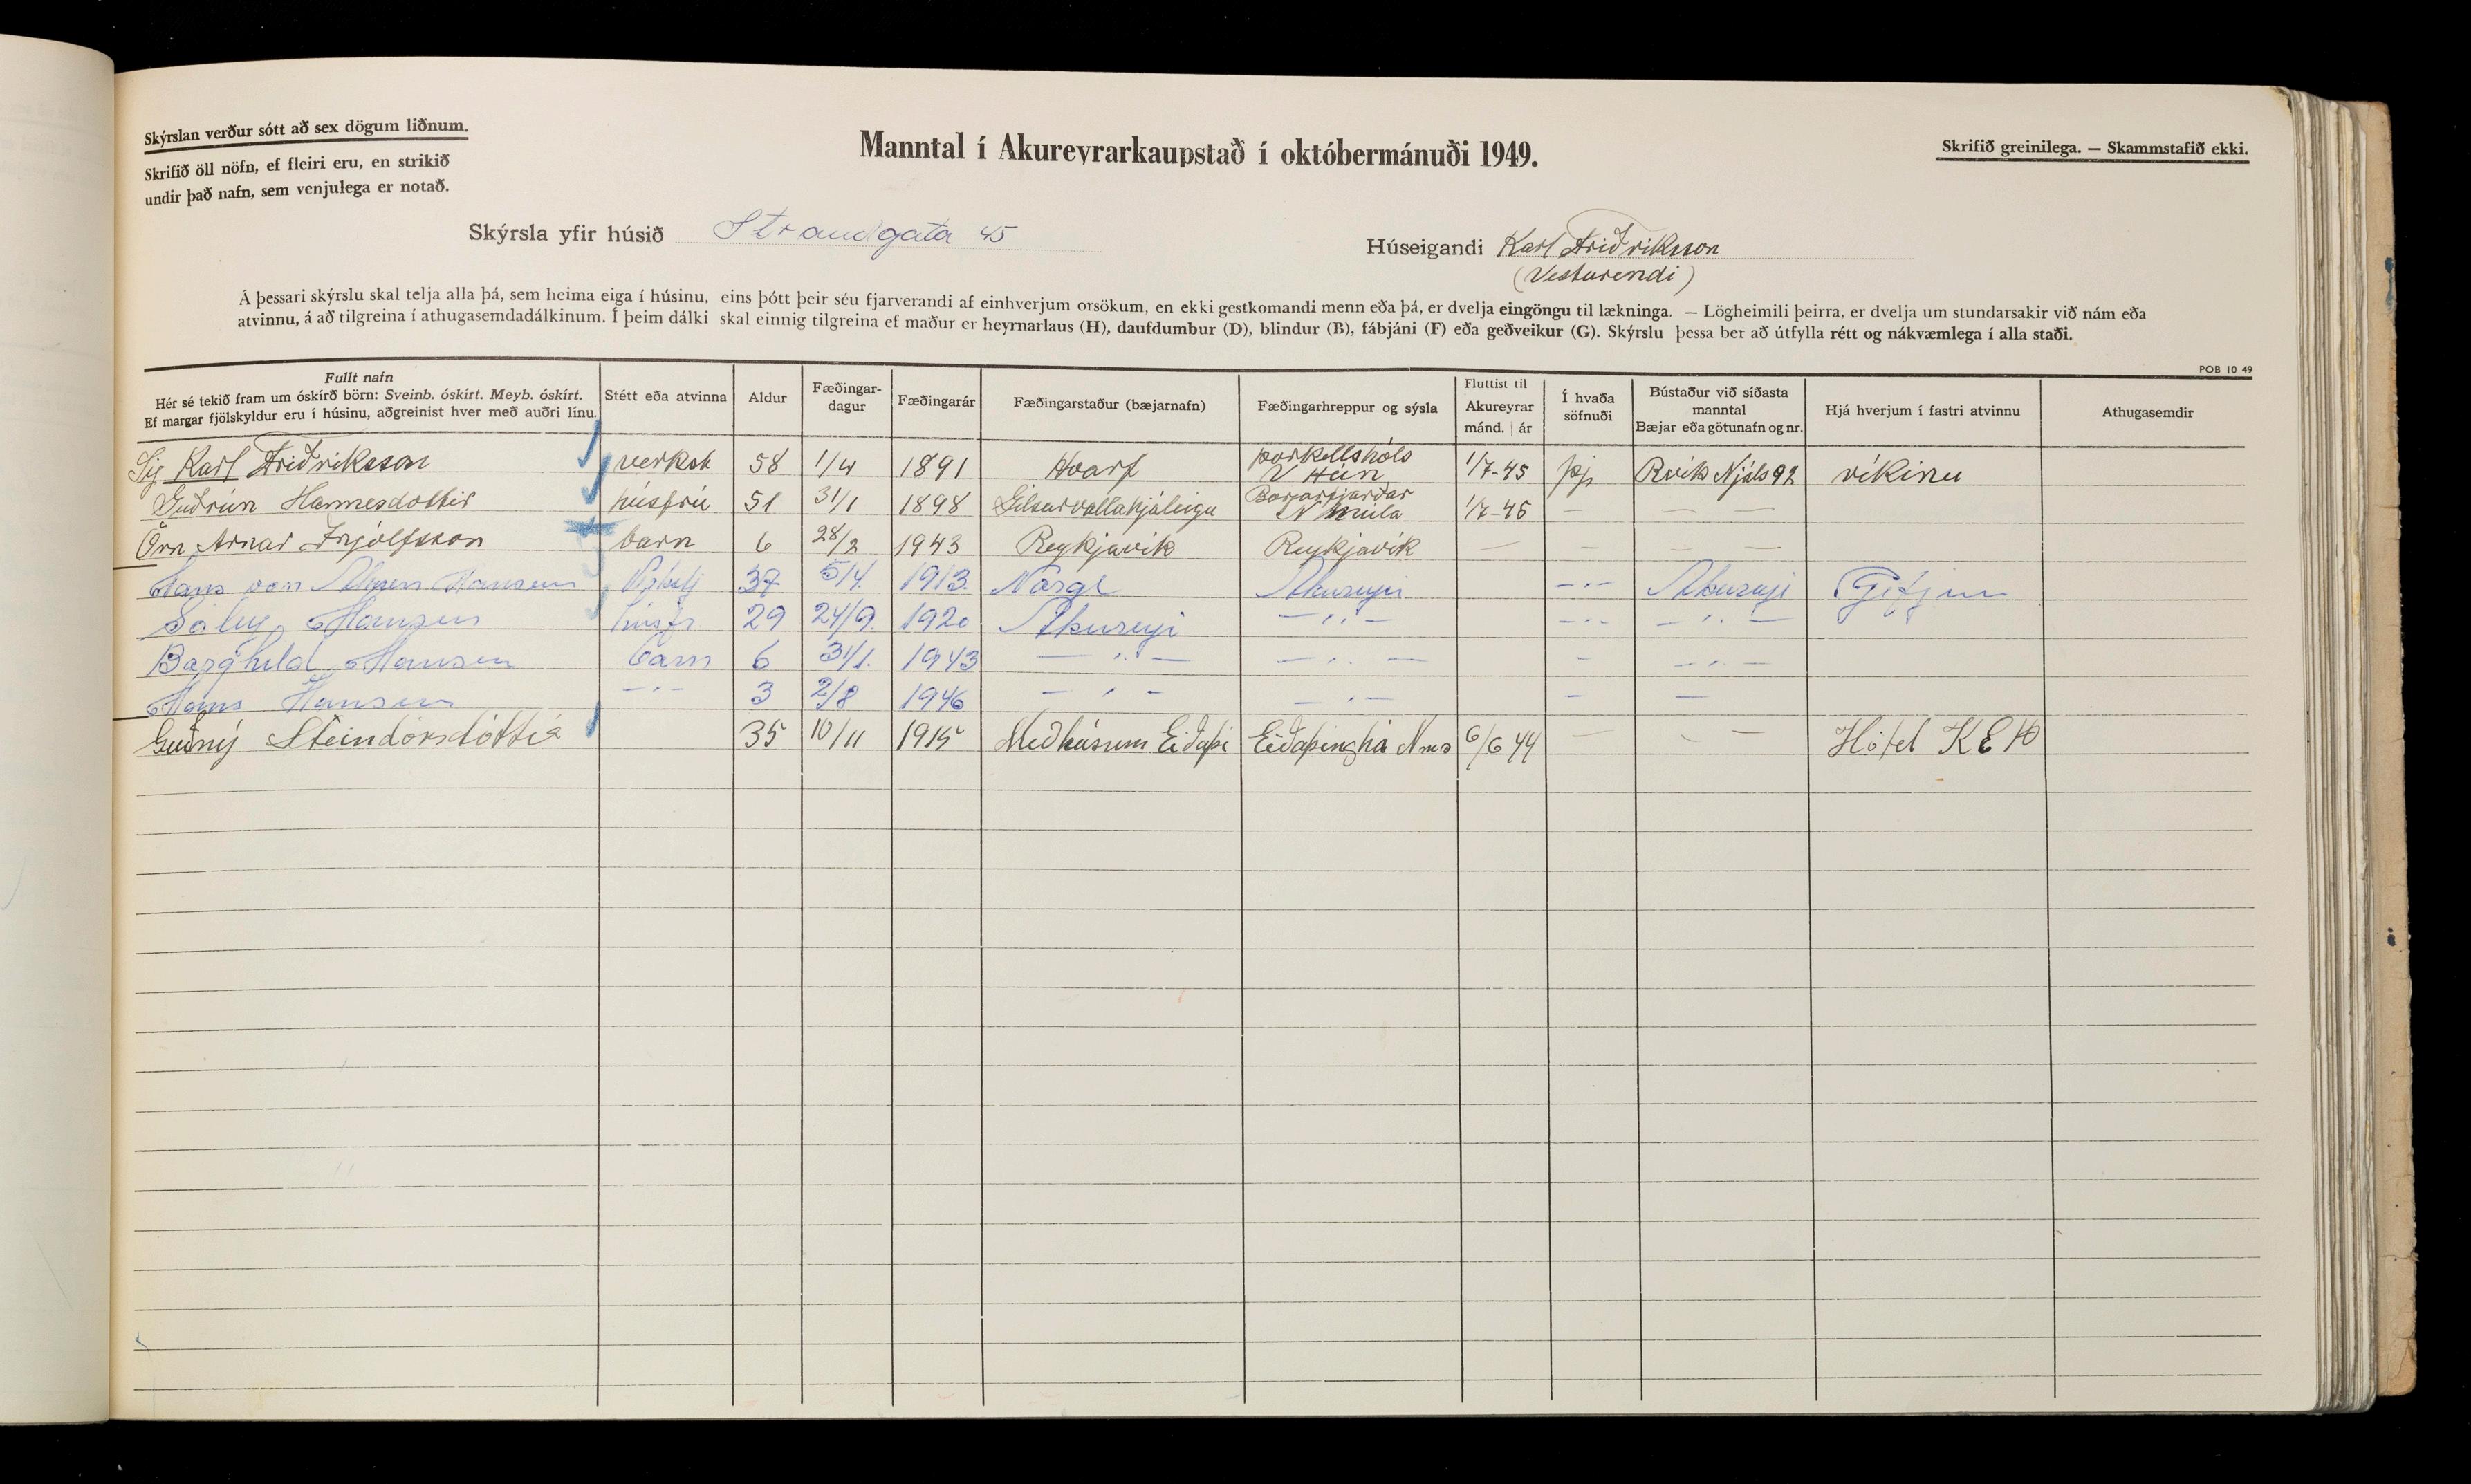 Skýrslan verður sótt að sex dögum liðnum.
Skrifið öll nöfn, ef fleiri eru, en strikið
undir það nafn, sem venjulega er notað.
Manntal í Akureyrarkaupstað í októbermánuði 1949.
Skrifið greinilega. — Skammstafið ekki.
Skýrsla yfir húsið Strandgata 45
Húseigandi Karl Friðriksson
(Vesturendi)
Á þessari skýrslu skal telja alla þá, sem heima eiga í húsinu, eins þótt þeir séu fjarverandi af einhverjum orsökum, en ekki gestkomandi menn eða þá, er dvelja eingöngu til lækninga. — Lögheimili þeirra, er dvelja um stundarsakir við nám eða
atvinnu, á að tilgreina í athugasemdadálkinum. Í þeim dálki skal einnig tilgreina ef maður er heyrnarlaus (H), daufdumbur (D), blindur (B), fábjáni (F) eða geðveikur (G). Skýrslu þessa ber að útfylla rétt og nákvæmlega í alla staði.
POB 10 49
Fullt nafn
Hér sé tekið fram um óskírð börn: Sveinb. óskírt. Meyb. óskírt.
Ef margar fjölskyldur eru í húsinu, aðgreinist hver með auðri línu.
Stétt eða atvinna
Aldur
Fæðingar-
dagur
Fæðingarár
Fæðingarstaður (bæjarnafn)
Fæðingarhreppur og sýsla
Fluttist til
Akureyrar
mánd. | ár
Í hvaða
söfnuði
Bústaður við síðasta
manntal
Bæjar eða götunafn og nr.
Hjá hverjum í fastri atvinnu
Athugasemdir
Sig Karl Friðriksson verkst 58 1/4 1891 Hvarf Þorkellshóls V Hún 1/7-45 þj Rvík Njáls 92 víkinu
Guðrún Hannesdottir húsfrú 51 31/1 1898 Gilsarvallahjáleigu Borgarfjarðar N múla 1/7-45 — — —
Örn Arnar Ingólfsson barn 6 28/2 1943 Reykjavík Reykjavík — — — —
Hans von Hansen 37 5/4. 1913. Norge Akureyri -"- Akureyri Gefjun
Sóley Hansen húsfr. 29 24/9. 1920 Akureyri —"— -"- —"—
Borghild Hansen barn 6 31/1. 1943 —"— —"— - —"—
Hans Hansen —"— 3 2/8 1946 —"— —"— - —
Guðný Steindórsdóttir 35 10/11 1915 Meðhúsum Eiðaþi Eiðaþinghá Nms 6/6 44 — — — Hótel KEA